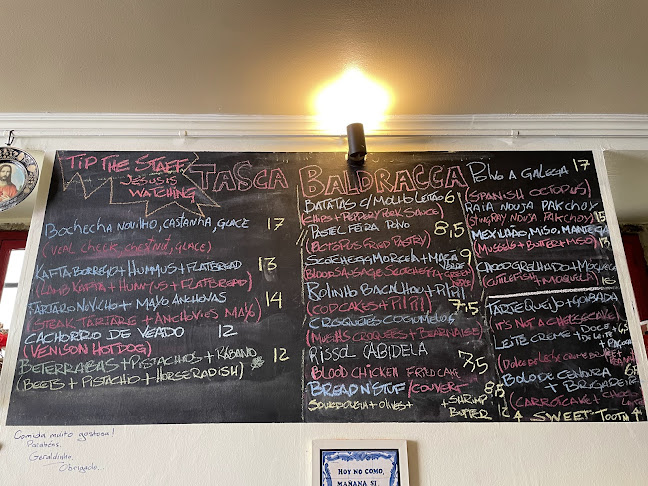 TIP THE STAFF
JESUS IS
WATCHING
TASCA BALDRACCA
BOCHECHA NOVILHO, CASTANHA, GLACE 17
(VEAL CHEEK, CHESTNUT, GLACE)
KAFTA BORREGO + HUMMUS + FLATBREAD 13
(LAMB KAFTA + HUMMUS + FLATBREAD)
TARTARO NOVILHO + MAYO ANCHOVAS 14
(STEAK TARTARE + ANCHOVIES MAYO)
CACHORRO DE VEADO 12
(VENISON HOTDOG)
BETERRABAS + PISTACHIOS + RABANO 12
(BEETS + PISTACHIO + HORSERADISH)
BATATAS C/ MOLHO LEITÃO 6
(CHIPS + PEPPERY PORK SAUCE)
PASTEL FEIRA POLVO 8,5
(OCTOPUS FRIED PASTRY)
SCOREGGA MORCELA + MAÇA 9
BLOOD SAUSAGE
BOLINHO BACALHAU + PIPI
(COD CAKES + PIPI) 7,5
CROSQUETES COGUMELOS
(MUSHIES CROQUETES + BEARNAISE)
RISSOL CABIDELA 7,5
(BLOOD CHICKEN FRIED CAKE)
BREAD N STUFF/COUVERT 8,5
SOURDOUGH + OLIVES + SHRIMP BUTTER 12
POLVO A GALEGA 17
(SPANISH OCTOPUS)
RAIA NOUJA PAK CHOY
(STINGRAY NOUJA PAKCHOY) 15
MEXILHÃO, MISO, MANTEIGA
(MUSSELS + BUTTER + MISO)
CHOCO GRELHADO +
(CUTTLEFISH + 16
TARTE QUEIJO + GOIABADA
(IT'S NOT A CHEESECAKE)
LEITE CREME + DOCE DE LEITE
(DOLCE DE LECHE
BOLO DE CENOURA + BRIGADEIRO
(CARROTCAKE +
SWEET TOOTH
Comida muito gostosa!
Parabéns.
Geraldinho.
Obrigado...
HOY NO COMO,
MAÑANA SI